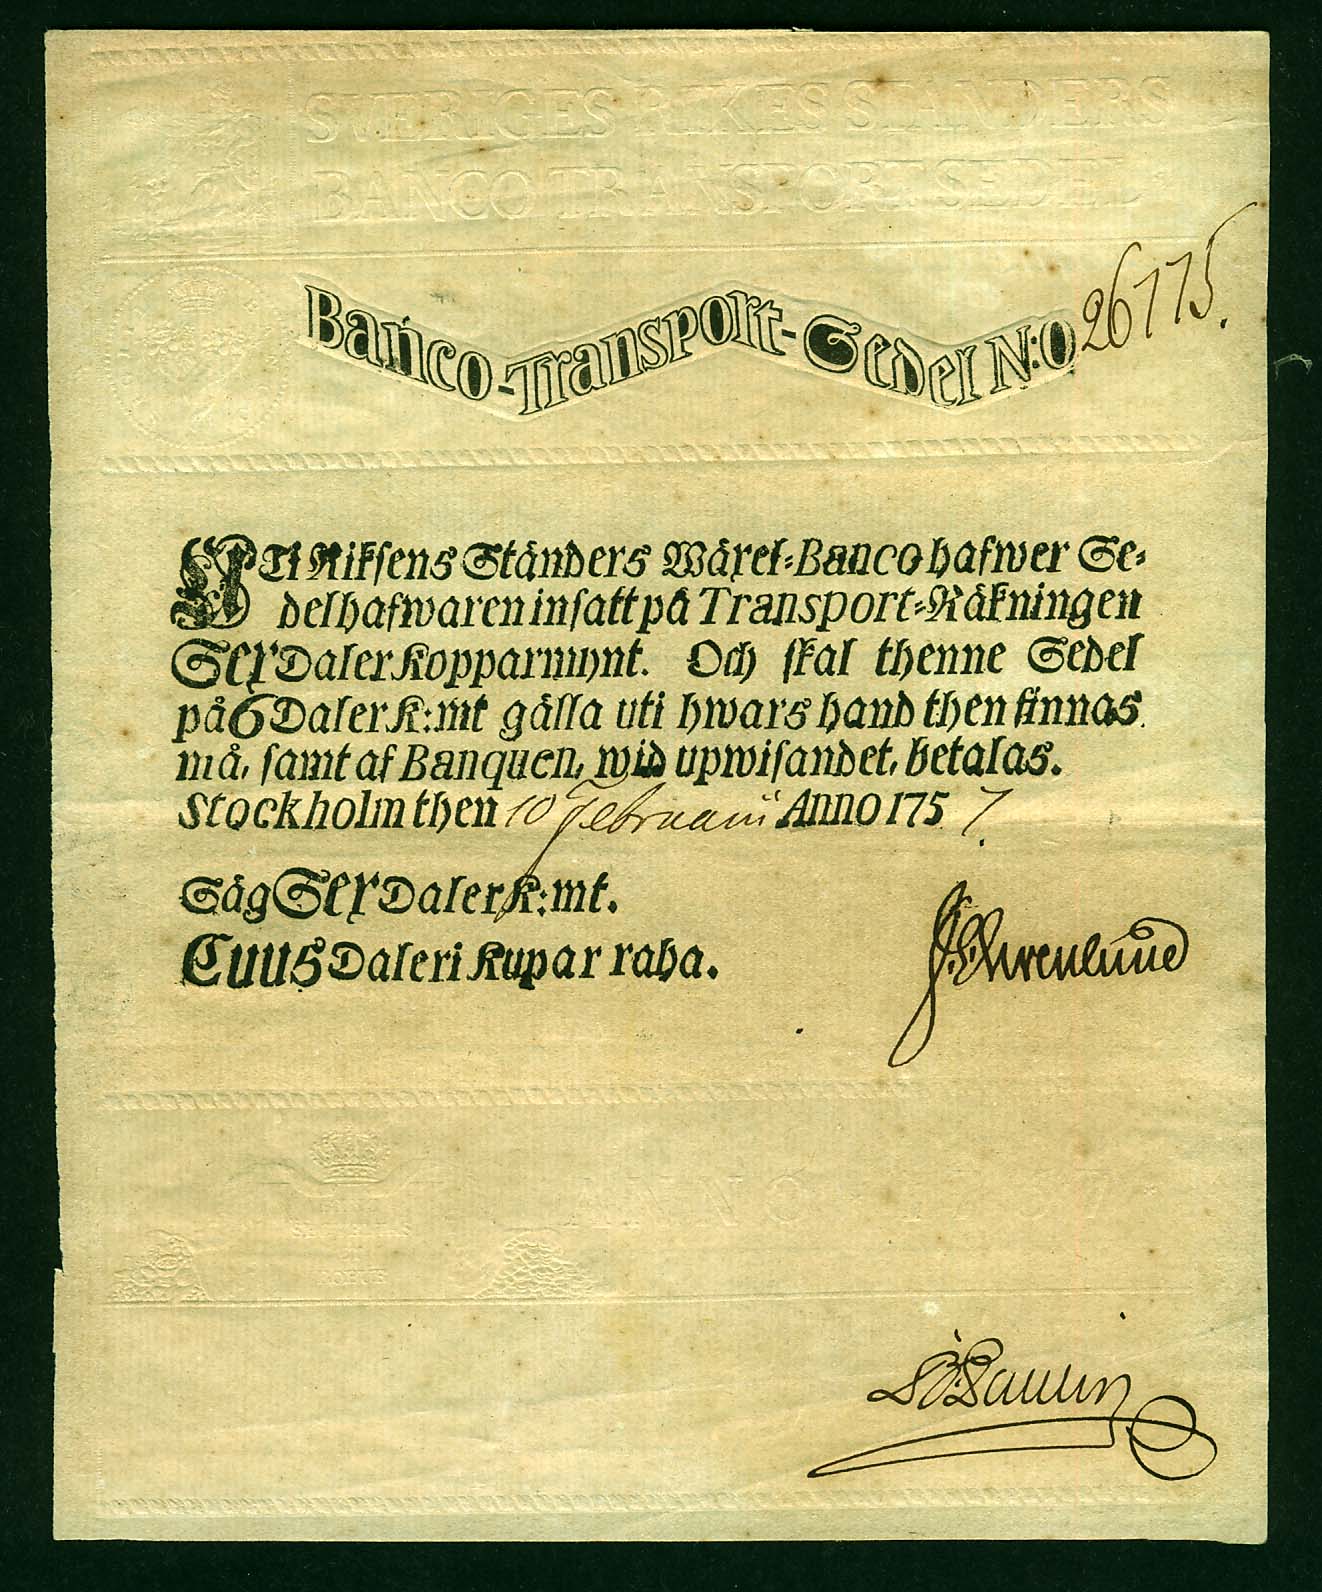 SVERIGES RIKES STÄNDERS
BANCO TRANSPORT SEDEL
Banco-Transport-Sedel N:o 26775.
UTi Riksens Ständers Wäxel-Banco hafwer Se-
delhafwaren insatt på Transport-Räkningen
Sex Daler Kopparmynt. Och skal thenne Sedel
på 6 Daler K:mt gälla uti hwars hand then finnas
må, samt af Banquen, wid upwisandet, betalas.
Stockholm then 10 Februarii Anno 1757.
Säg Sex Daler K:mt.
Cuus Daleri Kupar raha.
J. Ehrenlund
ANNO 1757